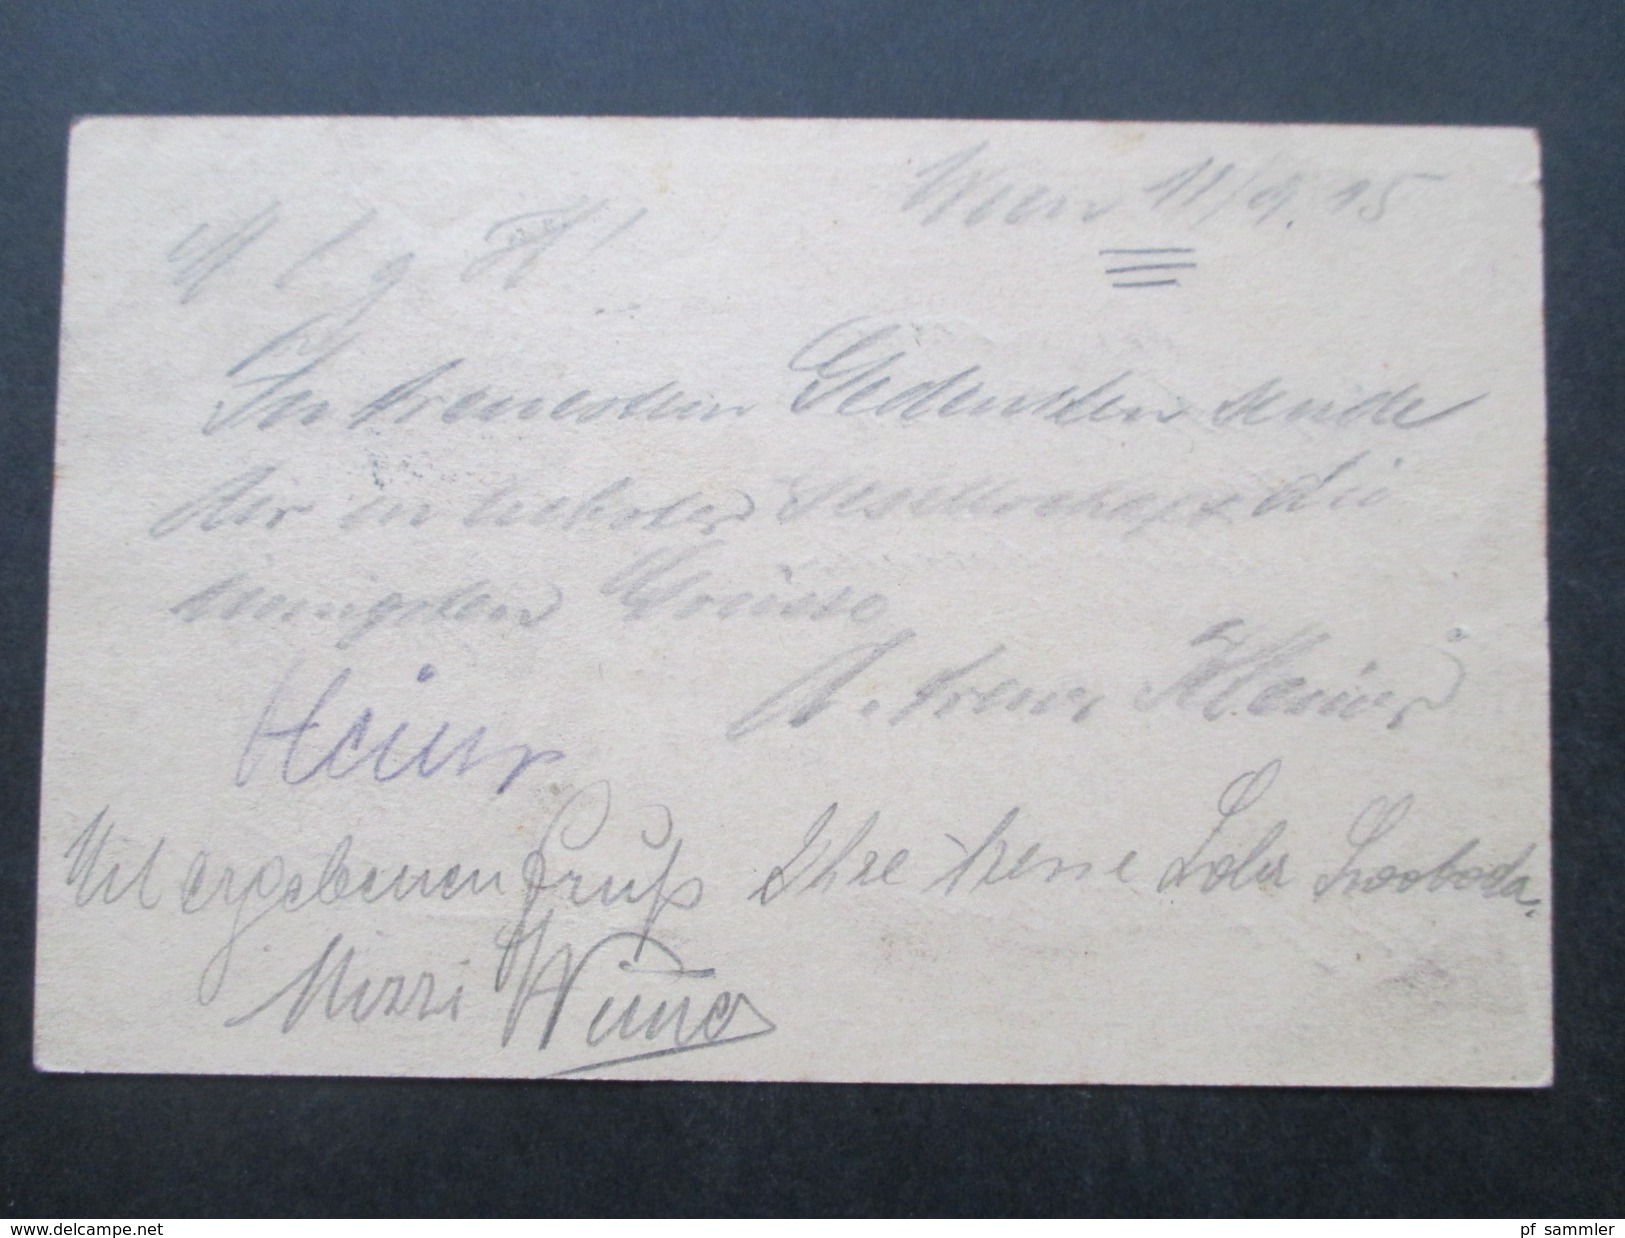 Wien 11/9. 15
M l g H!
In treuestem Gedenken sende
Dir in liebster Gesellschaft die
innigsten Grüsse
Heinr
Mit ergebenen Gruß Ihre Irene Swoboda.
Mizzi
www.delcampe.net
pf_sammler